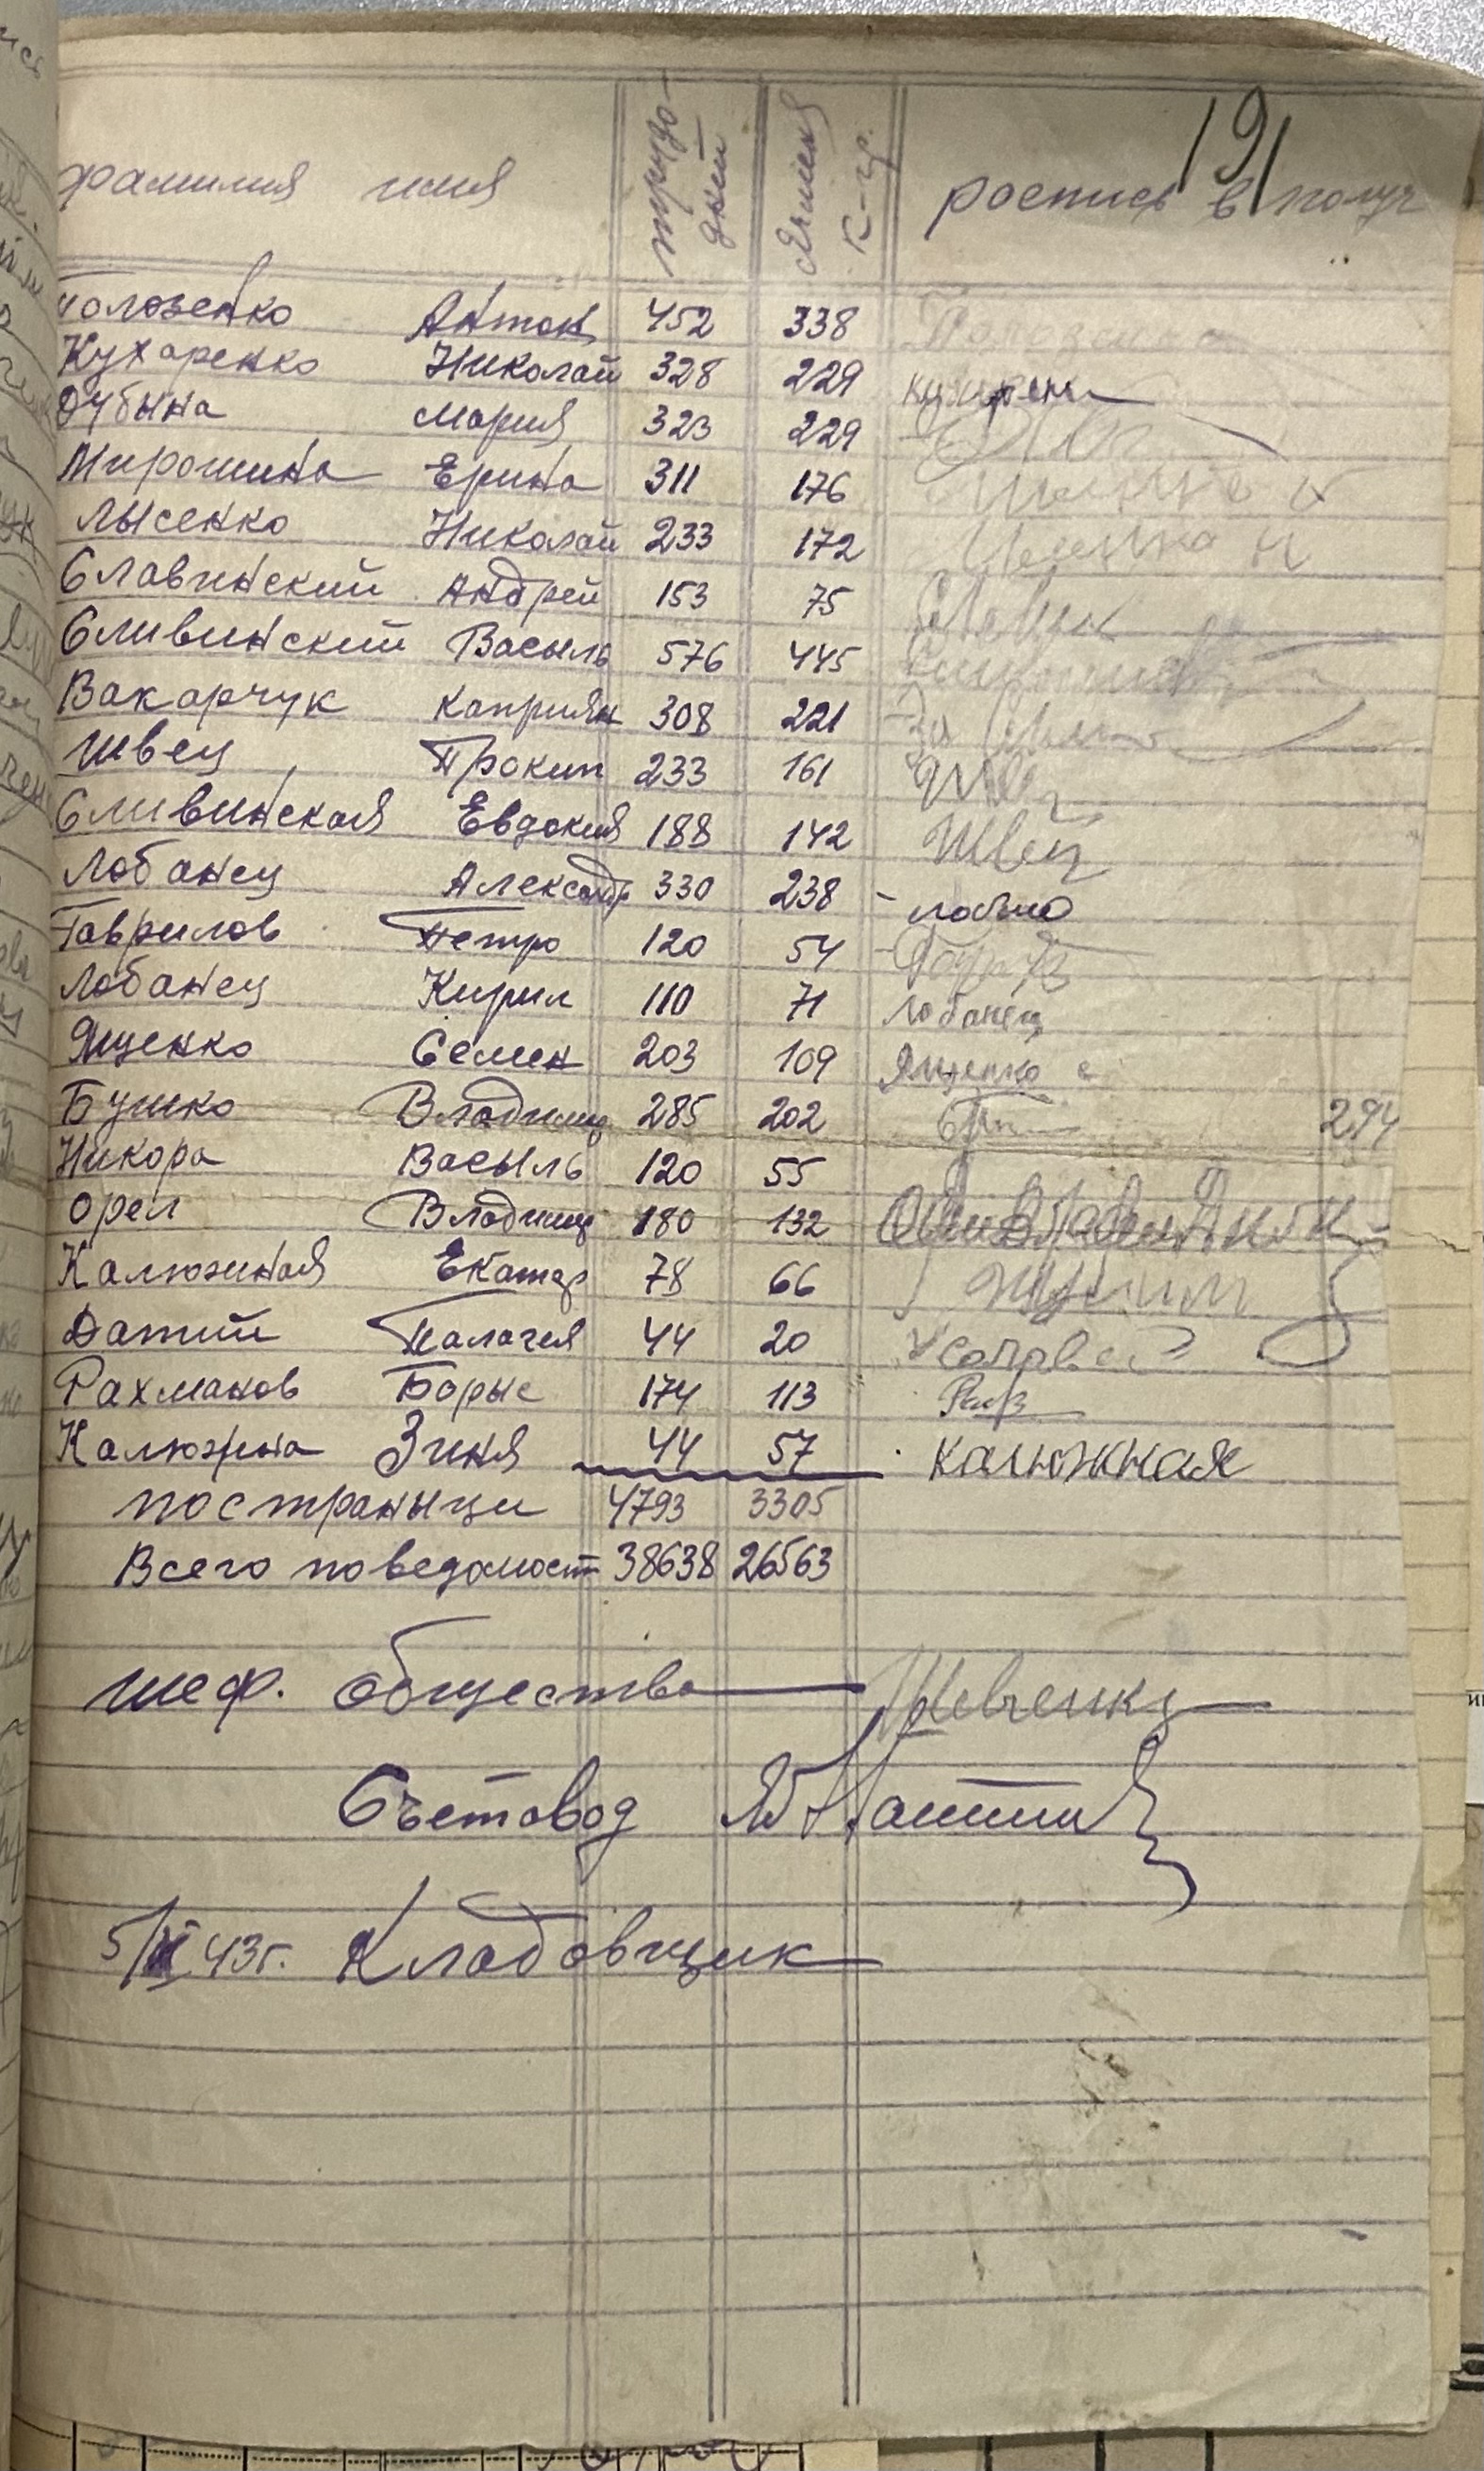 191
фамилия имя трудодней Ячменя к-гр. роспись в получ
Полозенко Антон 452 338
Кухаренко Николай 328 229 кухарен
Дубына Мария 323 229
Мирошина Ерина 311 176
Лысенко Николай 233 172
Славинский Андрей 153 75
Сливинский Васыль 576 445
Вакарчук Каприян 308 221 За
Швец Прокип 233 161 Швец
Сливинская Евдокия 188 142 Швец
Лобанец Александр 330 238 - лобано
Гаврилов Петро 120 54
Лобанец Кирил 110 71 Лобанец
Ященко Семен 203 109 Ященко с
Бушко Владимир 285 202 294
Никора Васыль 120 55
Орел Владимир 180 132
Калюжная Екатер 78 66
Датий Палагея 44 20
Рахманов Борыс 174 113
Калюжна Зиня 44 57 Калюжная
по страныци 4793 3305
Всего поведомост 38638 26563
шеф. общества Шевченко
Сьетовод
5/II 43г. Кладовщик